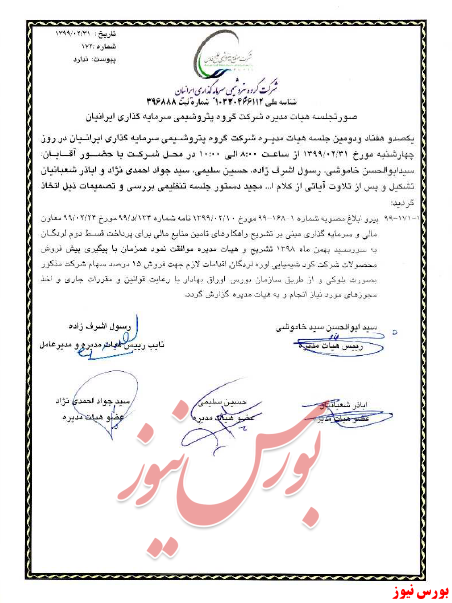 تاریخ : ۱۳۹۹/۰۲/۳۱
شماره: ۱۷۲
پیوست: ندارد
شرکت گروه پتروشیمی سرمایه گذاری ایرانیان
شناسه ملی ۱۰۳۲۰۴۴۶۱۱۲ شماره ثبت ۳۹۶۸۸۸
صورتجلسه هیات مدیره شرکت گروه پتروشیمی سرمایه گذاری ایرانیان
یکصدو هفتاد ودومین جلسه هیات مدیره شرکت گروه پتروشیمی سرمایه گذاری ایرانیان در روز
چهارشنبه مورخ ۱۳۹۹/۰۲/۳۱ از ساعت ۸:۰۰ الی ۱۰:۰۰ در محل شرکت با حضور آقایان:
سیدابوالحسن خاموشی، رسول اشرف زاده، حسین سلیمی، سید جواد احمدی نژاد و اباذر شعبانیان
تشکیل و پس از تلاوت آیاتی از کلام ا... مجید دستور جلسه تنظیمی بررسی و تصمیمات ذیل اتخاذ
گردید:
۹۹-۱۷۱-۱ پیرو ابلاغ مصوبه شماره ۱-۱۶۸-۹۹ مورخ ۱۳۹۹/۰۲/۱۰ نامه شماره ۱۲۳/د/۹۹ مورخ ۹۹/۰۲/۲۴ معاون
مالی و سرمایه گذاری مبنی بر تشریح راهکارهای تامین منابع مالی برای پرداخت قسط دوم لردگان
به سررسید بهمن ماه ۱۳۹۸ تشریح و هیات مدیره موافقت نمود همزمان با پیگیری پیش فروش
محصولات شرکت کود شیمیایی اوره لردگان اقدامات لازم جهت فروش ۱۵ درصد سهام شرکت مذکور
بصورت بلوکی و از طریق سازمان بورس اوراق بهادار با رعایت قوانین و مقررات جاری و اخذ
مجوزهای مورد نیاز انجام و به هیات مدیره گزارش گردد.
سید ابوالحسن سید خاموشی
رییس هیات مدیره
رسول اشرف زاده
نایب رییس هیات مدیره و مدیرعامل
اباذر شعبانیان
عضو هیات مدیره
حسین سلیمی
عضو هیات مدیره
سید جواد احمدی نژاد
عضو هیات مدیره
بورس نیوز
بورس نیوز